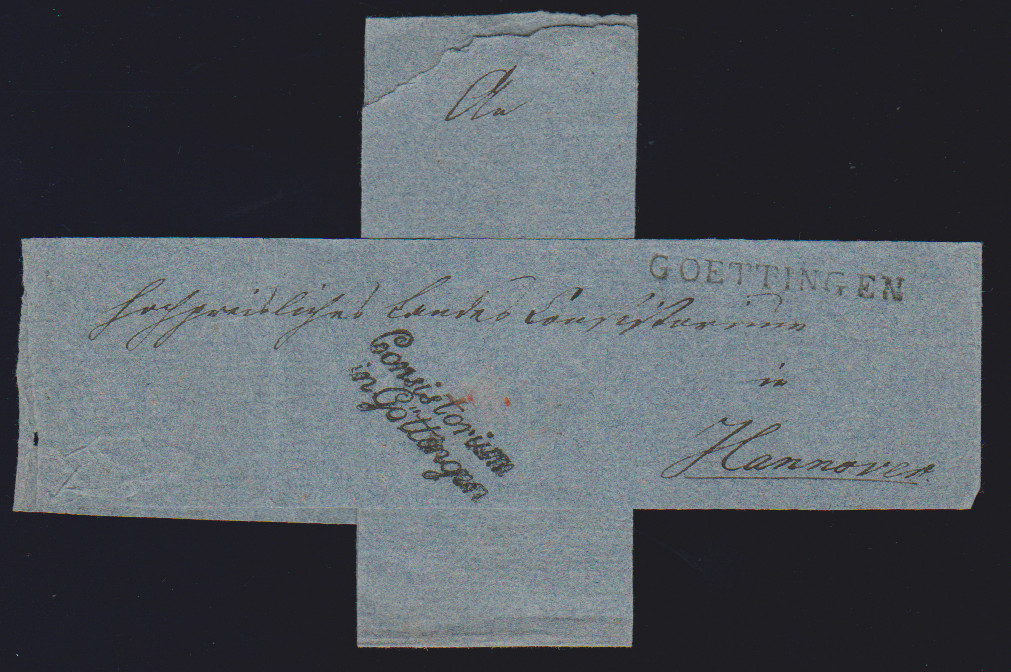 An
GOETTINGEN
Hochpreisliches Landes Consistorium
Consistorium
in Göttingen
in
Hannover.